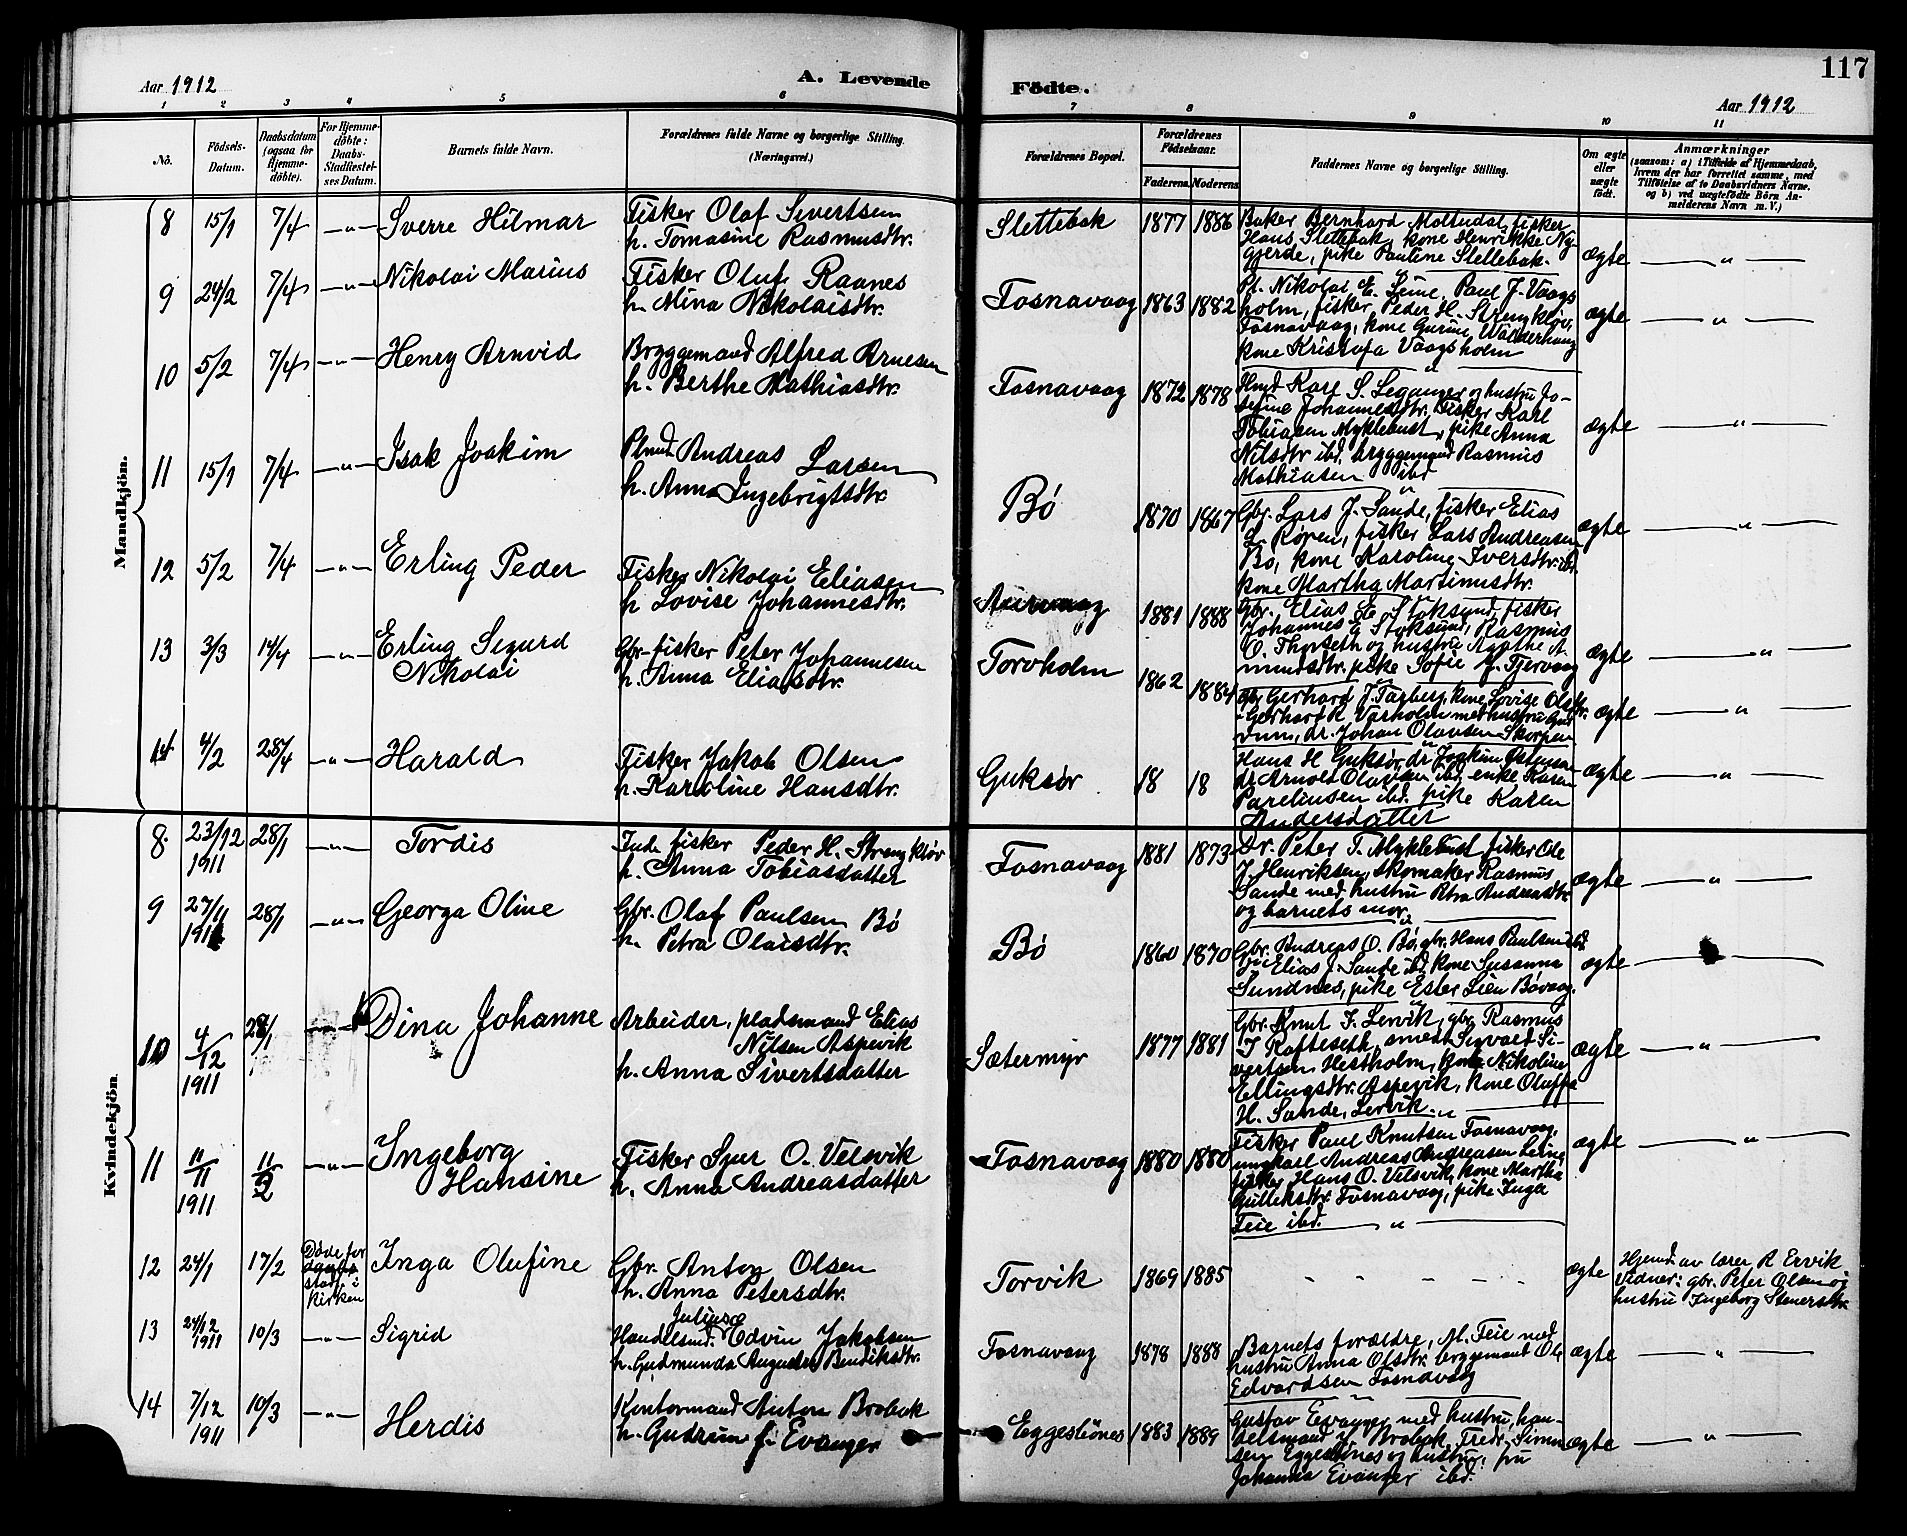 117
Aar 1912
A. Levende
Födte.
Aar 1912
1 2 3 4 5 6 7 8 9 10 11
No.
Födsels-
Datum.
Daabsdatum
(ogsaa for
Hjemme-
döbte).
For Hjemme-
döbte:
Daabs-
Stadfæstel-
ses Datum.
Barnets fulde Navn.
Forældrenes fulde Navne og borgerlige Stilling.
(Næringsvei.)
Forældrenes Bopæl.
Forældrenes
Födselsaar.
Faderens. Moderens.
Faddernes Navne og borgerlige Stilling.
Om ægte
eller
uægte
født.
Anmærkninger
(saasom: a) i Tilfælde af Hjemmedaab,
hvem der har forrettet samme, med
Tilföielse af to Daabsvidners Navne,
og b) ved uægtefødte Börn An-
melderens Navn m. V.)
Mandkjön.
8 15/1 7/4 —"— Sverre Hilmar
Fisker Olaf Sivertsen
h. Tomasine Rasmusdtr.
Slettebak 1877 1886
Baker Bernhard Moltudal, fisker
Hans Slettebak, kone Henrikke Ny-
gjerde, pike Pauline Slettebak.
ægte —"—
9 24/2 7/4 —"— Nikolai Marius
Fisker Oluf Raanes
h. Mina Nikolaisdtr.
Fosnavaag 1863 1882
Pl. Nikolai E. Leine, Paul J. Vaags
holm, fisker Peder H. Strengkløv,
Fosnavaag, kone Gurine Walderhaug
kone Kristofa Vaagsholm
ægte —"—
10 5/2 7/4 —"— Henry Arnvid
Bryggemand Alfred Arnesen
h. Berthe Mathiasdtr.
Fosnavaag 1872 1878
Hmd. Karl S. Leganger og hustru Jo-
sefine Johannesdtr. Fisker Karl
Tobiasen Myklebust, pike Anna
Nilsdtr ibd. bryggemand Rasmus
Mathiasen ibd
ægte —"—
11 15/1 7/4 —"— Isak Joakim
Plmd. Andreas Larsen
h. Anna Ingebrigtsdtr.
Bø 1870 1867
Gbr. Lars J. Sande, fisker Elias
L. Røren, fisker Lars Andreasen
Bø, kone Karoline Iversdtr. ibd.
kone Martha Martinusdtr.
ægte —"—
12 5/2 7/4 —"— Erling Peder
Fisker Nikolai Eliasen
h Lovise Johannesdtr.
1881 1888
Gbr. Elias E. Stoksund, fisker
Johannes E Stoksund, Rasmus
O. Thorseth og hustru Agathe A-
mundsdtr. pike Sofie J. Tjervaag
ægte —"—
13 3/3 14/4 —"— Erling Sigurd
Nikolai
Gbr-fisker Peter Johannesen
h. Anna Eliasdtr.
Torvholm 1862 1884
Gbr Gerhard J. Tarberg, kone Lovise Olsdtr.
Gerhard R. Varholm med hustru Gud
runn, dr. Johan Olavsen Skorpen
ægte —"—
14 4/2 28/4 —"— Harald
Fisker Jakob Olsen
h. Karoline Hansdtr.
Guksør 18 18
Hans H Guksør, dr Joakim Ostensen
dr. Arnold Olavsen ibd, enke Karen
Parelinsen ibd. pike Karen
Andersdatter
ægte —"—
Kvindekjön
8. 23/12 1911 28/1 —"— Tordis
Inds. fisker Peder H. Strengkløv
h. Anna Tobiasdatter
Fosnavaag 1881 1873
Dr. Peter T. Myklebust fisker Ole
J. Henriksen, skomaker Rasmus
Sande med hustru Petra Andreasdtr
og barnets mor
ægte —"—
9 27/11 1911 28/1 —"— Georga Oline
Gbr. Olaf Paulsen Bø
h. Petra Olaisdtr.
Bø 1860 1870
Gbr. Andreas O. Bø, gbr. Hans Paulsen ibd.
gbr. Elias J. Sande ibd. kone Susanna
Sundnes, pike Ester Lien Bøvaag.
ægte
10 4/12 1911 28/1 —"— Dina Johanne
Arbeider, pladsmand Elias
Nilsen Aspevik
h. Anna Sivertsdatter
Sætermyr 1877 1881
Gbr. Knut I. Lervik, gbr. Rasmus
I Rafteseth, smed Sigvald Si-
vertsen Hestholm, kone Nikoline
Ellingsdtr. Aspevik, kone Oluffa
H. Sande, Lervik.
ægte —"—
11 11/11 1911 11/2 —"— Ingeborg
Hansine
Fisker Sjur O. Velsvik
h. Anna Andreasdatter
Fosnavaag 1880 1880
Fisker Paul Knutsen Fosnavaag,
ungkarl Andreas Andreasen Leine,
fisker Hans O. Velsvik, kone Martha
Gulleksdtr. Fosnavaag, pike Inga
Teie ibd.
ægte —"—
12 24/1 17/2 Døde før
daabs
stadf. i
kirken
Inga Olufine
Gbr. Anton Olsen
h. Anna Petersdtr.
Torvik 1869 1885
ægte
Hjemd. av lærer R Ervik
Vidner: gbr. Peter Olsen og
hustru Ingeborg Stenersdtr.
13 24/12 1911 10/3 —"— Sigrid
Julius
Handlesmd. Edvin Jakobsen
h. Gudmunda Augusta Bendiksdtr.
Fosnavaag 1878 1888
Barnets forældre, M. Teie med
hustru Anna Olsdtr. bryggemand Ole
Edvardsen Fosnavaag
ægte —"—
14 7/12 1911 10/3 —"— Herdis
Kontormand Anton Brobak
h. Gudrun f. Evanger
Eggesbönes 1883 1889
Gustav Evanger med hustru, han-
delsmand J. Brobak, Fredr. Simon
sen Eggesbönes og hustru, fru
Johanna Evanger ibd.
ægte —"—